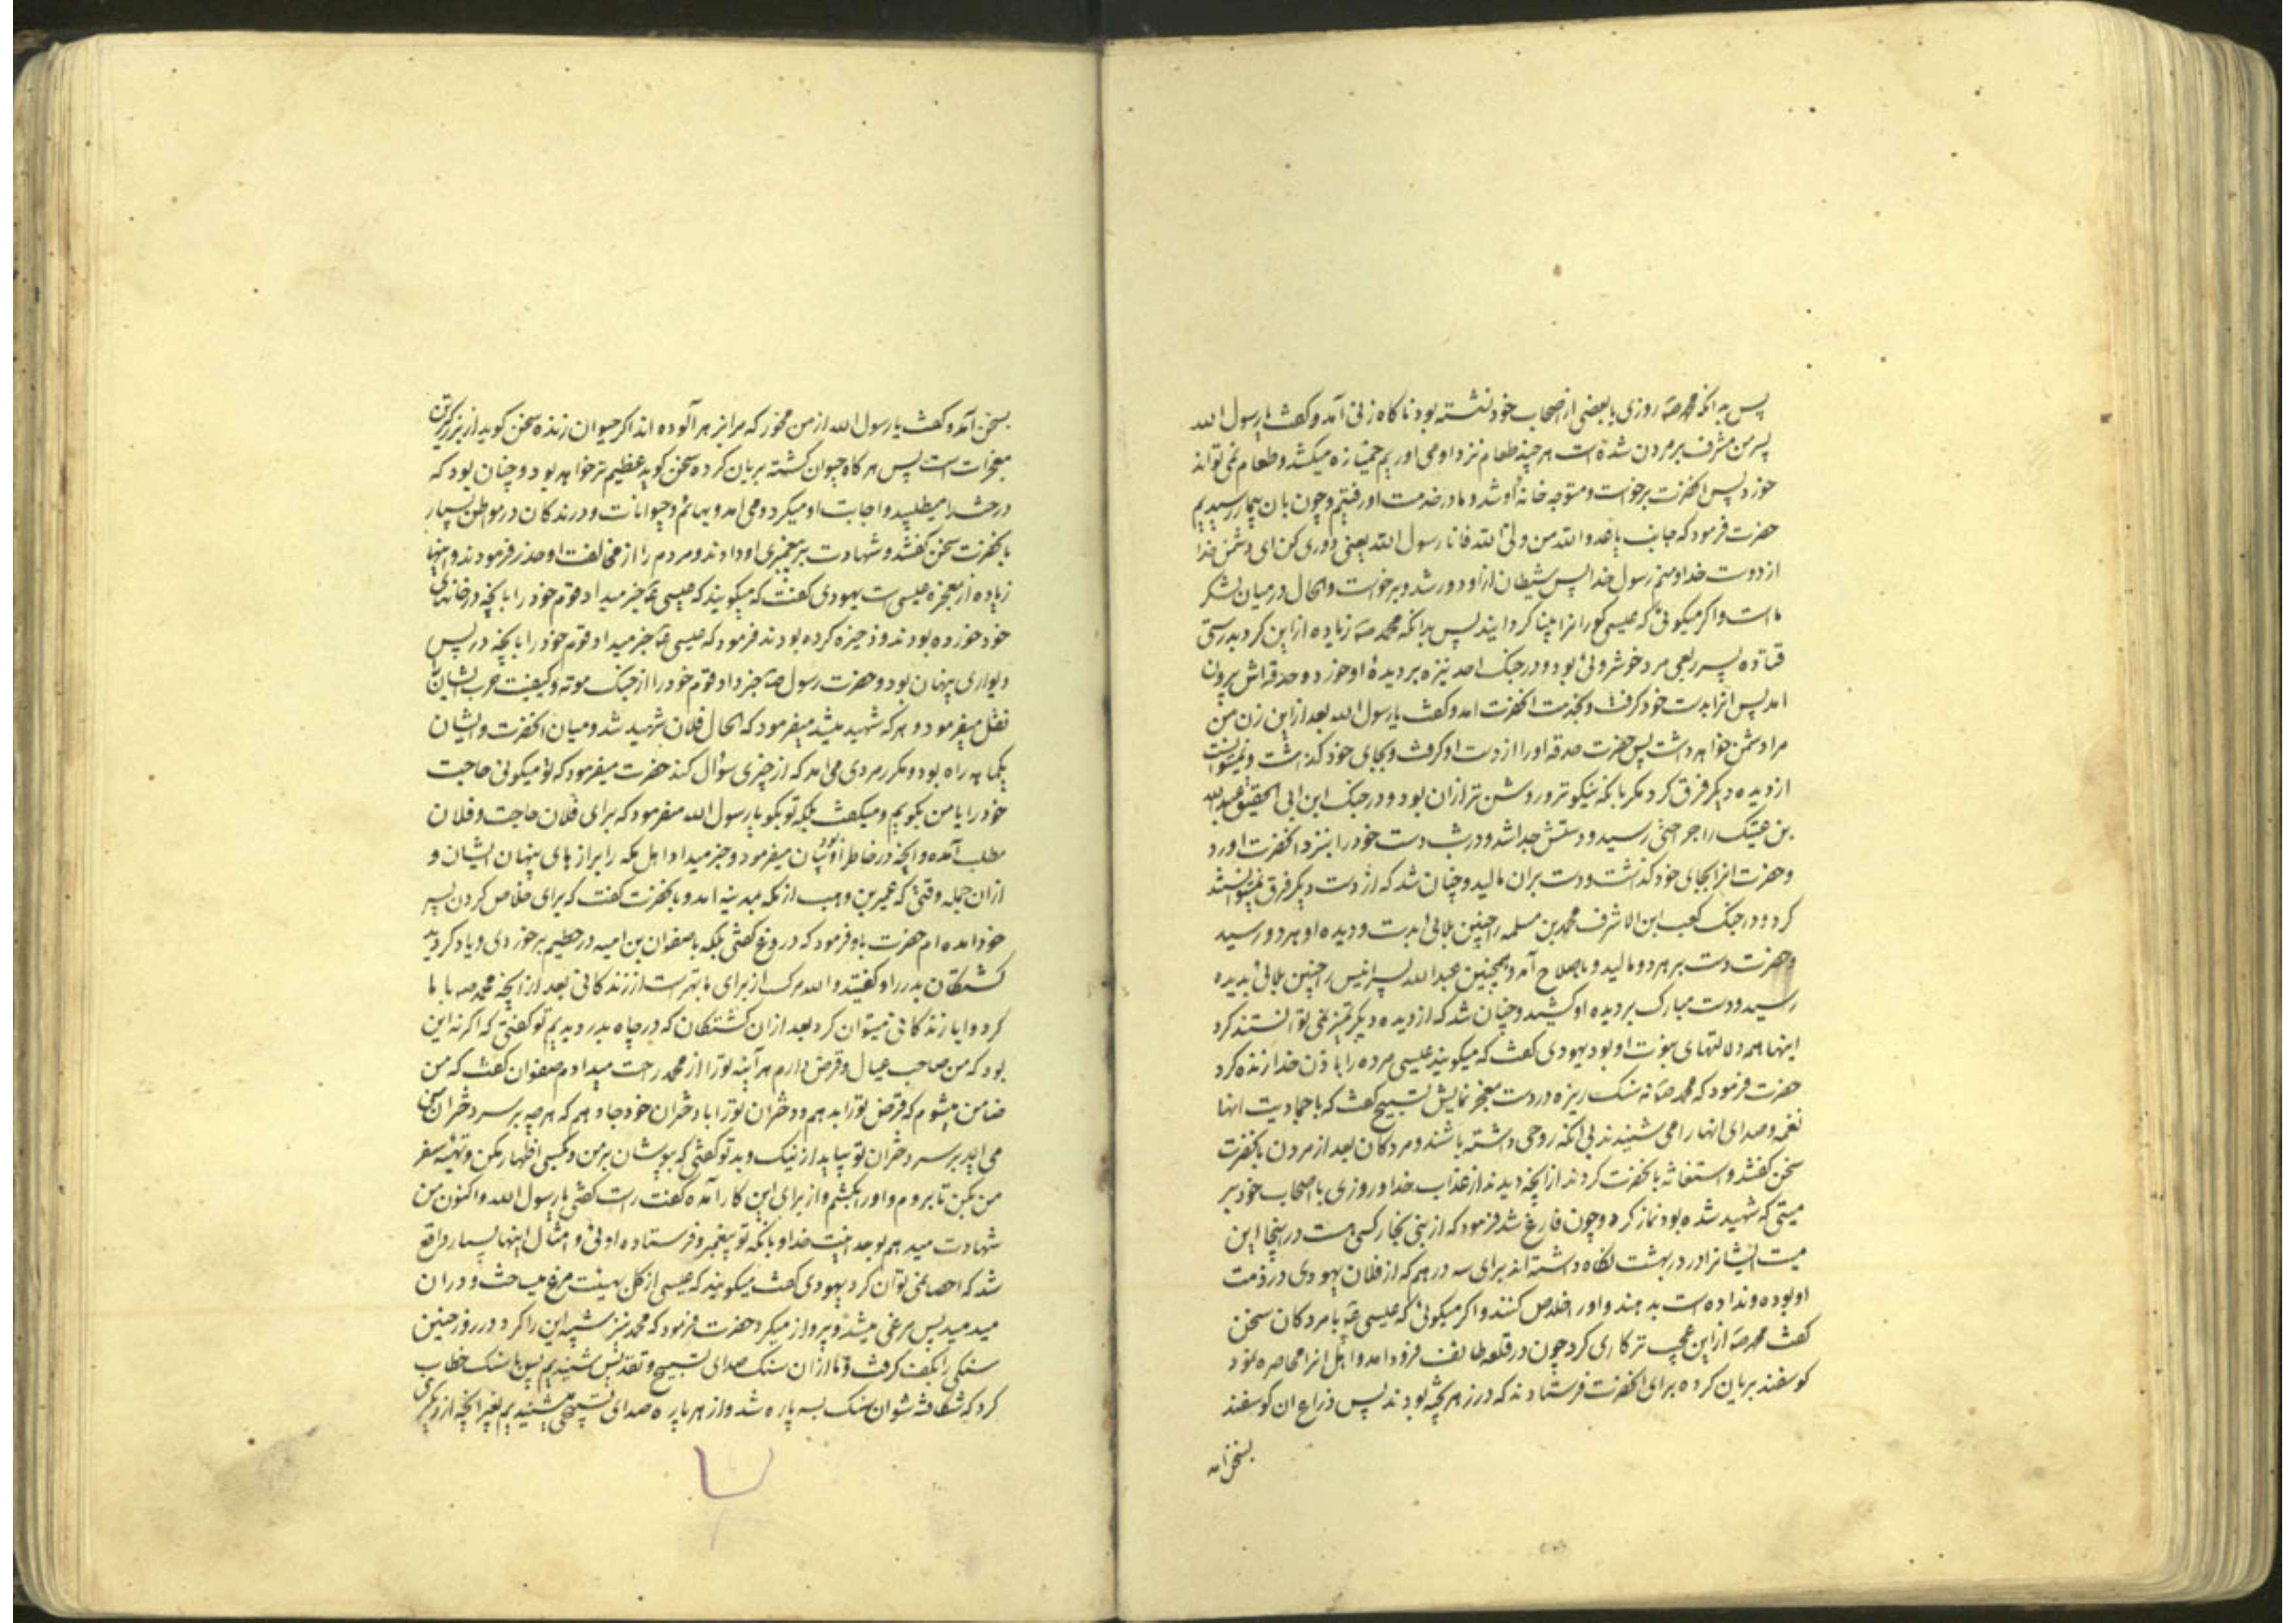 پس بدانکه محمد صه روزی با بعضی از اصحاب خود نشسته بود ناکاه زنی آمد و کفت یا رسول الله
پسر من مشرف بر مردن شده است هر چند طعام نزد او می اوریم خمیازه میکشد و طعام نمی تواند
خورد پس انحضرت برخواست و متوجه خانه او شد و ما در خدمت او رفتیم و چون بان بیمار رسیدیم
حضرت فرمود که جانب یا عدو الله من ولی الله فانا رسول الله یعنی دوری کن ای دشمن خدا
از دوست خدا و منم رسول خدا پس شیطان از او دور شد و برخواست و الحال در میان لشکر
ما است و اکر میکوئی که عیسی کورانرا بینا کردانید پس بدانکه محمد صه زیاده از این کرد بدرستی
قتاده پسر ربعی مرد خوشروئی بود و در جنک احد نیزه بر دیده او خورد و حدقه اش بیرون
امد پس انرا بدست خود کرفت و بخدمت انحضرت امد و کفت یا رسول الله بعد از این زن من
مرا دشمن خواهد داشت پس حضرت حدقه او را از دست او کرفت و بجای خود کذاشت و نمیتوانست
از دیده دیکر فرق کرد مکر بانکه نیکوتر و روشن تر از ان بود و در جنک ابن ابی الحقیق عبد الله
بن عتیک را جراحتی رسید و دستش جدا شد و در شب دست خود را بنزد انحضرت اورد
و حضرت انرا بجای خود کذاشت و دست بران مالید و چنان شد که از دست دیکر فرق نمیتوانستند
کرد و در جنک کعب ابن الاشرف محمد بن مسلمه را چنین بلائی بدست و دیده او هر دو رسید
و حضرت دست بر هر دو مالید و باصلاح آمد و همچنین عبد الله پسر انیس را چنین بلائی بدیده
رسید و دست مبارک بر دیده او کشید و چنان شد که از دیده دیکر تمیز نمی توانستند کرد
اینها همه دلالتهای نبوت او بود یهودی کفت که میکویند عیسی مرده را باذن خدا زنده کرد
حضرت فرمود که محمد صه نه سنک ریزه در دست معجز نمایش تسبیح کفت که با جمادیت انها
نغمه و صدای انها را می شنیدند بی انکه روحی داشته باشند و مردکان بعد از مردن بانحضرت
سخن کفتند و استغاثه بانحضرت کردند از انچه دیدند از عذاب خدا و روزی با اصحاب خود بر
میتی که شهید شده بود نماز کرد و چون فارغ شد فرمود که از بنی نجار کسی هست در اینجا این
میت ایشانرا در در بهشت نکاه داشته اند برای سه درهم که از فلان یهودی در ذمت
او بوده و نداده است بدهند و او را خلاص کنند و اکر میکوئی که عیسی عه با مردکان سخن
کفت محمد صه از این عجب تر کاری کرد چون در قلعه طائف فرود امد و اهل انرا محاصره نمود
کوسفند بریان کرده برای انحضرت فرستادند که در زهر پخته بودند پس ذراع ان کوسفند
بسخن امد
بسخن آمد و کفت یا رسول الله از من مخور که مرا بزهر آلوده اند اکر حیوان زنده سخن کوید از بزرکترین
معجزات است پس هر کاه حیوان کشته بریان کرده سخن کوید عظیم تر خواهد بود و چنان بود که
درخت را میطلبید و اجابت او میکرد و می امد و بهائم و حیوانات و درندکان در مواطن بسیار
بانحضرت سخن کفتند و شهادت بپیغمبری او دادند و مردم را از مخالفت او حذر فرمودند و اینها
زیاده از معجزه عیسی است یهودی کفت که میکویند که عیسی عه خبر میداد قوم خود را بانچه در خانهای
خود خورده بودند و ذخیره کرده بودند فرمود که عیسی عه خبر میداد قوم خود را بانچه در پس
دیواری پنهان بود و حضرت رسول صه خبر داد قوم خود را از جنک موته و کیفیت حرب ایشان
نقل میفرمود و هر که شهید میشد میفرمود که الحال فلان شهید شد و میان انحضرت و ایشان
یکماهه راه بود و مکرر مردی می امد که از چیزی سؤال کند حضرت میفرمود که تو میکوئی حاجت
خود را یا من بکویم و میکفت بلکه تو بکو یا رسول الله میفرمود که برای فلان حاجت و فلان
مطلب آمده و انچه در خاطر او بود بیان میفرمود و خبر میداد اهل مکه را برازهای پنهان ایشان و
از ان جمله وقتی که عمیر بن وهب از مکه بمدینه امد و بانحضرت کفت که برای خلاص کردن پسر
خود امده ام حضرت باو فرمود که دروغ کفتی بلکه با صفوان بن امیه در حطیم برخوردی و یاد کردید
کشتکان بدر را و کفتید والله مرک از برای ما بهتر است از زندکانی بعد از انچه محمد صه با ما
کرد و ایا زندکانی میتوان کرد بعد از ان کشتکان که در چاه بدر دیدیم تو کفتی که اکر نه این
بود که من صاحب عیال و قرض دارم هر آینه تو را از محمد راحت میدادم صفوان کفت که من
ضامن میشوم که قرض تو را بدهم و دختران تو را با دختران خود جا دهم که هر چه بر سر دختران من
می اید بر سر دختران تو بیاید از نیک و بد تو کفتی که بپوشان بر من و بکسی اظهار مکن و تهیه سفر
من بکن تا بروم و او را بکشم و از برای این کار آمده کفت راست کفتی یا رسول الله و اکنون من
شهادت میدهم بوحدانیت خدا و بانکه تو پیغمبر و فرستاده اوئی و امثال اینها بسیار واقع
شد که احصا نمی توان کرد یهودی کفت میکویند که عیسی از کل بهیئت مرغ میساخت و در ان
میدمید پس مرغی میشد و پرواز میکرد حضرت فرمود که محمد نیز شبیه این را کرد و در روز حنین
سنکی را بکف کرفت و ما از ان سنک صدای تسبیح و تقدیس شنیدیم پس با سنک خطاب
کرد که شکافته شو ان سنک بسه پاره شد و از هر پاره صدای تسبیحی میشنیدیم بغیر انچه از دیکری